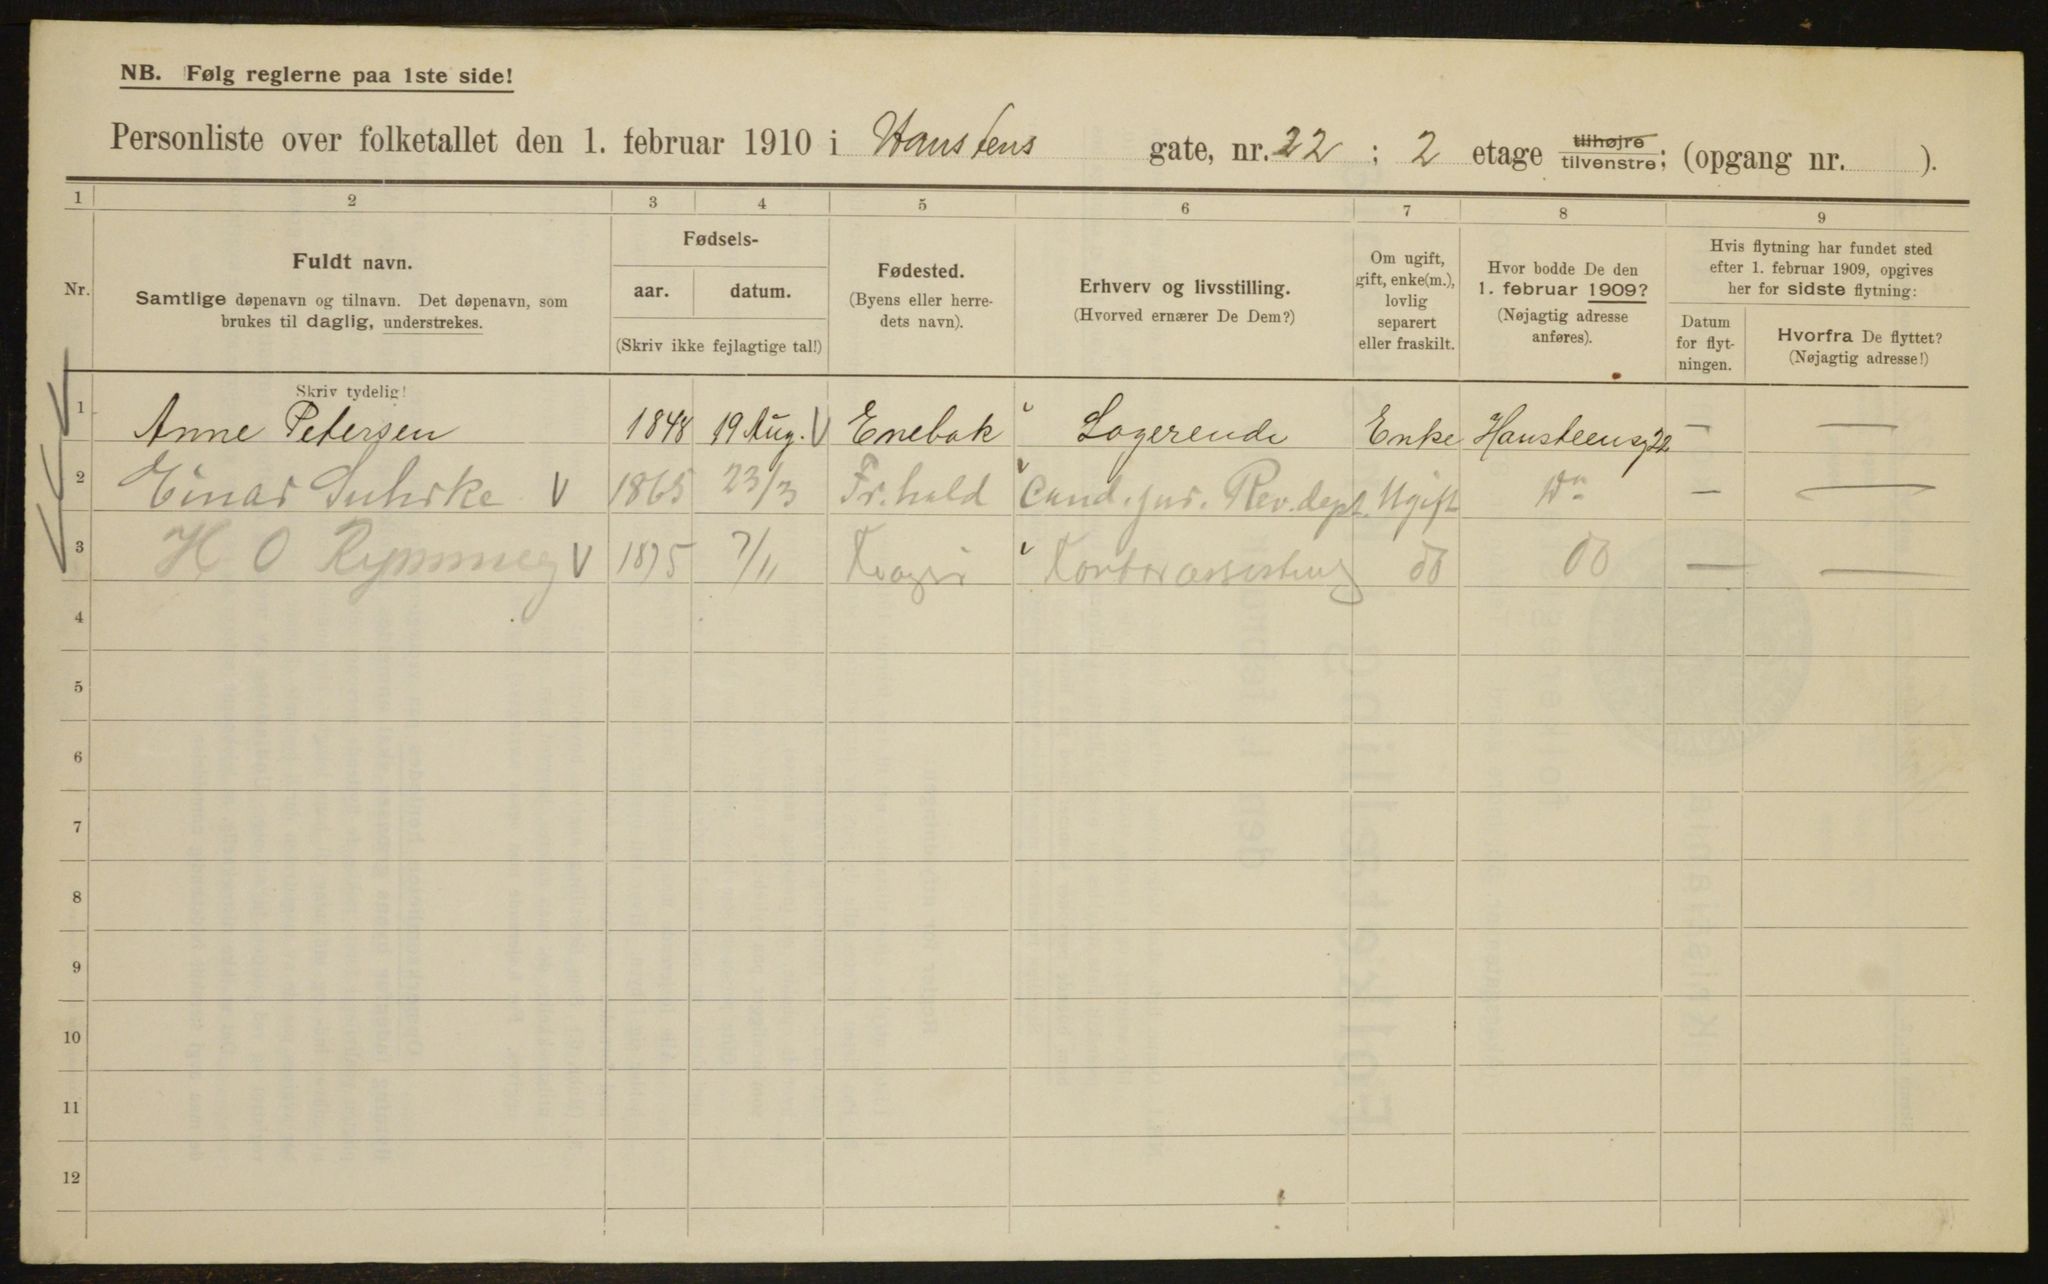 NB. Følg reglerne paa 1ste side!
Personliste over folketallet den 1. februar 1910 i Hanstens gate, nr. 22 ; 2 etage tilhøjre tilvenstre; (opgang nr. ).
1 2 3 4 5 6 7 8 9
Nr.
Fuldt navn.
Samtlige døpenavn og tilnavn. Det døpenavn, som
brukes til daglig, understrekes.
Fødsels-
aar. datum.
(Skriv ikke fejlagtige tal!)
Fødested.
(Byens eller herre-
dets navn).
Erhverv og livsstilling.
(Hvorved ernærer De Dem?)
Om ugift,
gift, enke(m.),
lovlig
separert
eller fraskilt.
Hvor bodde De den
1. februar 1909?
(Nøjagtig adresse
anføres).
Hvis flytning har fundet sted
efter 1. februar 1909, opgives
her for sidste flytning:
Datum
for flyt-
ningen.
Hvorfra De flyttet?
(Nøjagtig adresse!)
Skriv tydelig!
1 Anne Petersen 1848 19 Aug. V Enebak Logerende Enke Hansteensg 22 — —
2 Einar Suhrke V 1865 23/3 Fr.hald Cand. jur. Rev.dept. Ugift Do — —
3 H O V 1875 7/11 do do — —
4
5
6
7
8
9
10
11
12